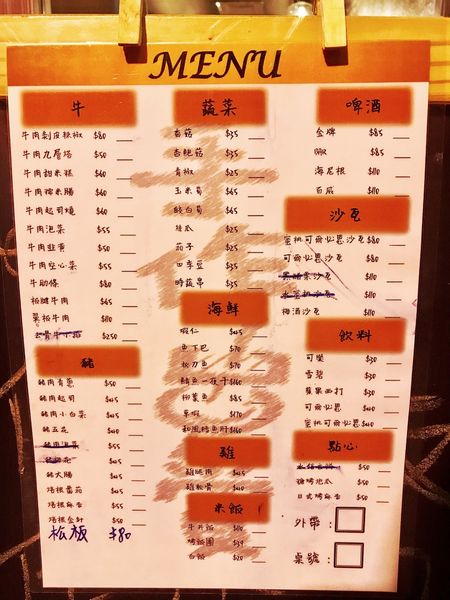 MENU
牛
牛肉剝皮辣椒 $80
牛肉九層塔 $50
牛肉甜米糕 $60
牛肉糯米腸 $60
牛肉起司燒 $60
牛肉泡菜 $55
牛肉韭黃 $50
牛肉空心菜 $55
牛肋條 $80
板腱牛肉 $65
菜 牛肉 $110
$250
豬
豬肉青蔥 $50
豬肉起司 $45
豬肉小白菜 $45
豬五花 $40
豬肉泡菜 $55
$45
豬大腸 $45
培根番茄 $45
培根麻吉 $55
培根金針 $50
松板 $80
蔬菜
香菇 $35
杏鮑菇 $35
青椒 $25
玉米筍 $45
筊白筍 $45
絲瓜 $25
茄子 $25
四季豆 $35
時蔬串 $35
海鮮
蝦仁 $45
魚下巴 $70
秋刀魚 $70
鯖魚一夜干 $160
柳葉魚 $85
草蝦 $170
和風鱈魚肝 $160
雞
雞腿肉 $45
雞軟骨 $40
米飯
牛丼飯 $110
烤飯糰 $39
白飯 $20
啤酒
金牌 $85
$85
海尼根 $110
百威 $110
沙瓦
蜜桃可爾必思沙瓦 $80
可爾必思沙瓦 $80
黑醋栗沙瓦 $110
水蜜桃沙瓦 $110
梅酒沙瓦 $110
飲料
可樂 $30
雪碧 $30
蘋果西打 $30
可爾必思 $40
蜜桃可爾必思 $40
點心
$50
糖烤地瓜 $50
日式烤麻吉 $50
外帶：
桌號：